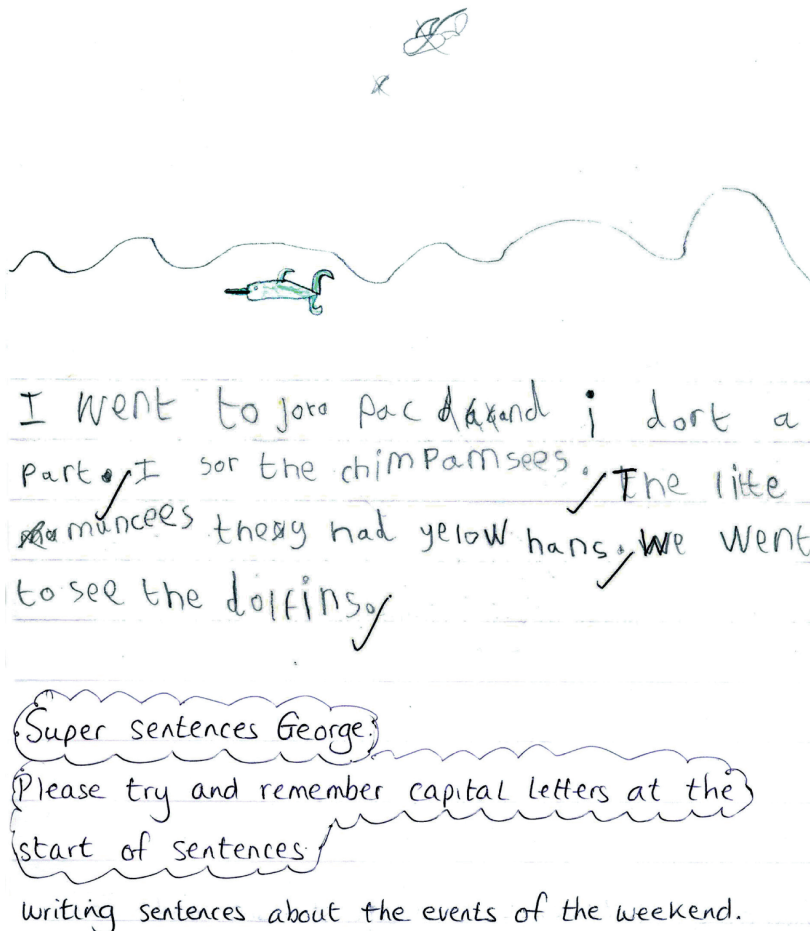 I went to joro pac and i dort a
part. I sor the chimpamsees. The litte
muncees theay had yelow hans. We went
to see the dolfins.
Super sentences George.
Please try and remember capital letters at the
start of sentences.
writing sentences about the events of the weekend.